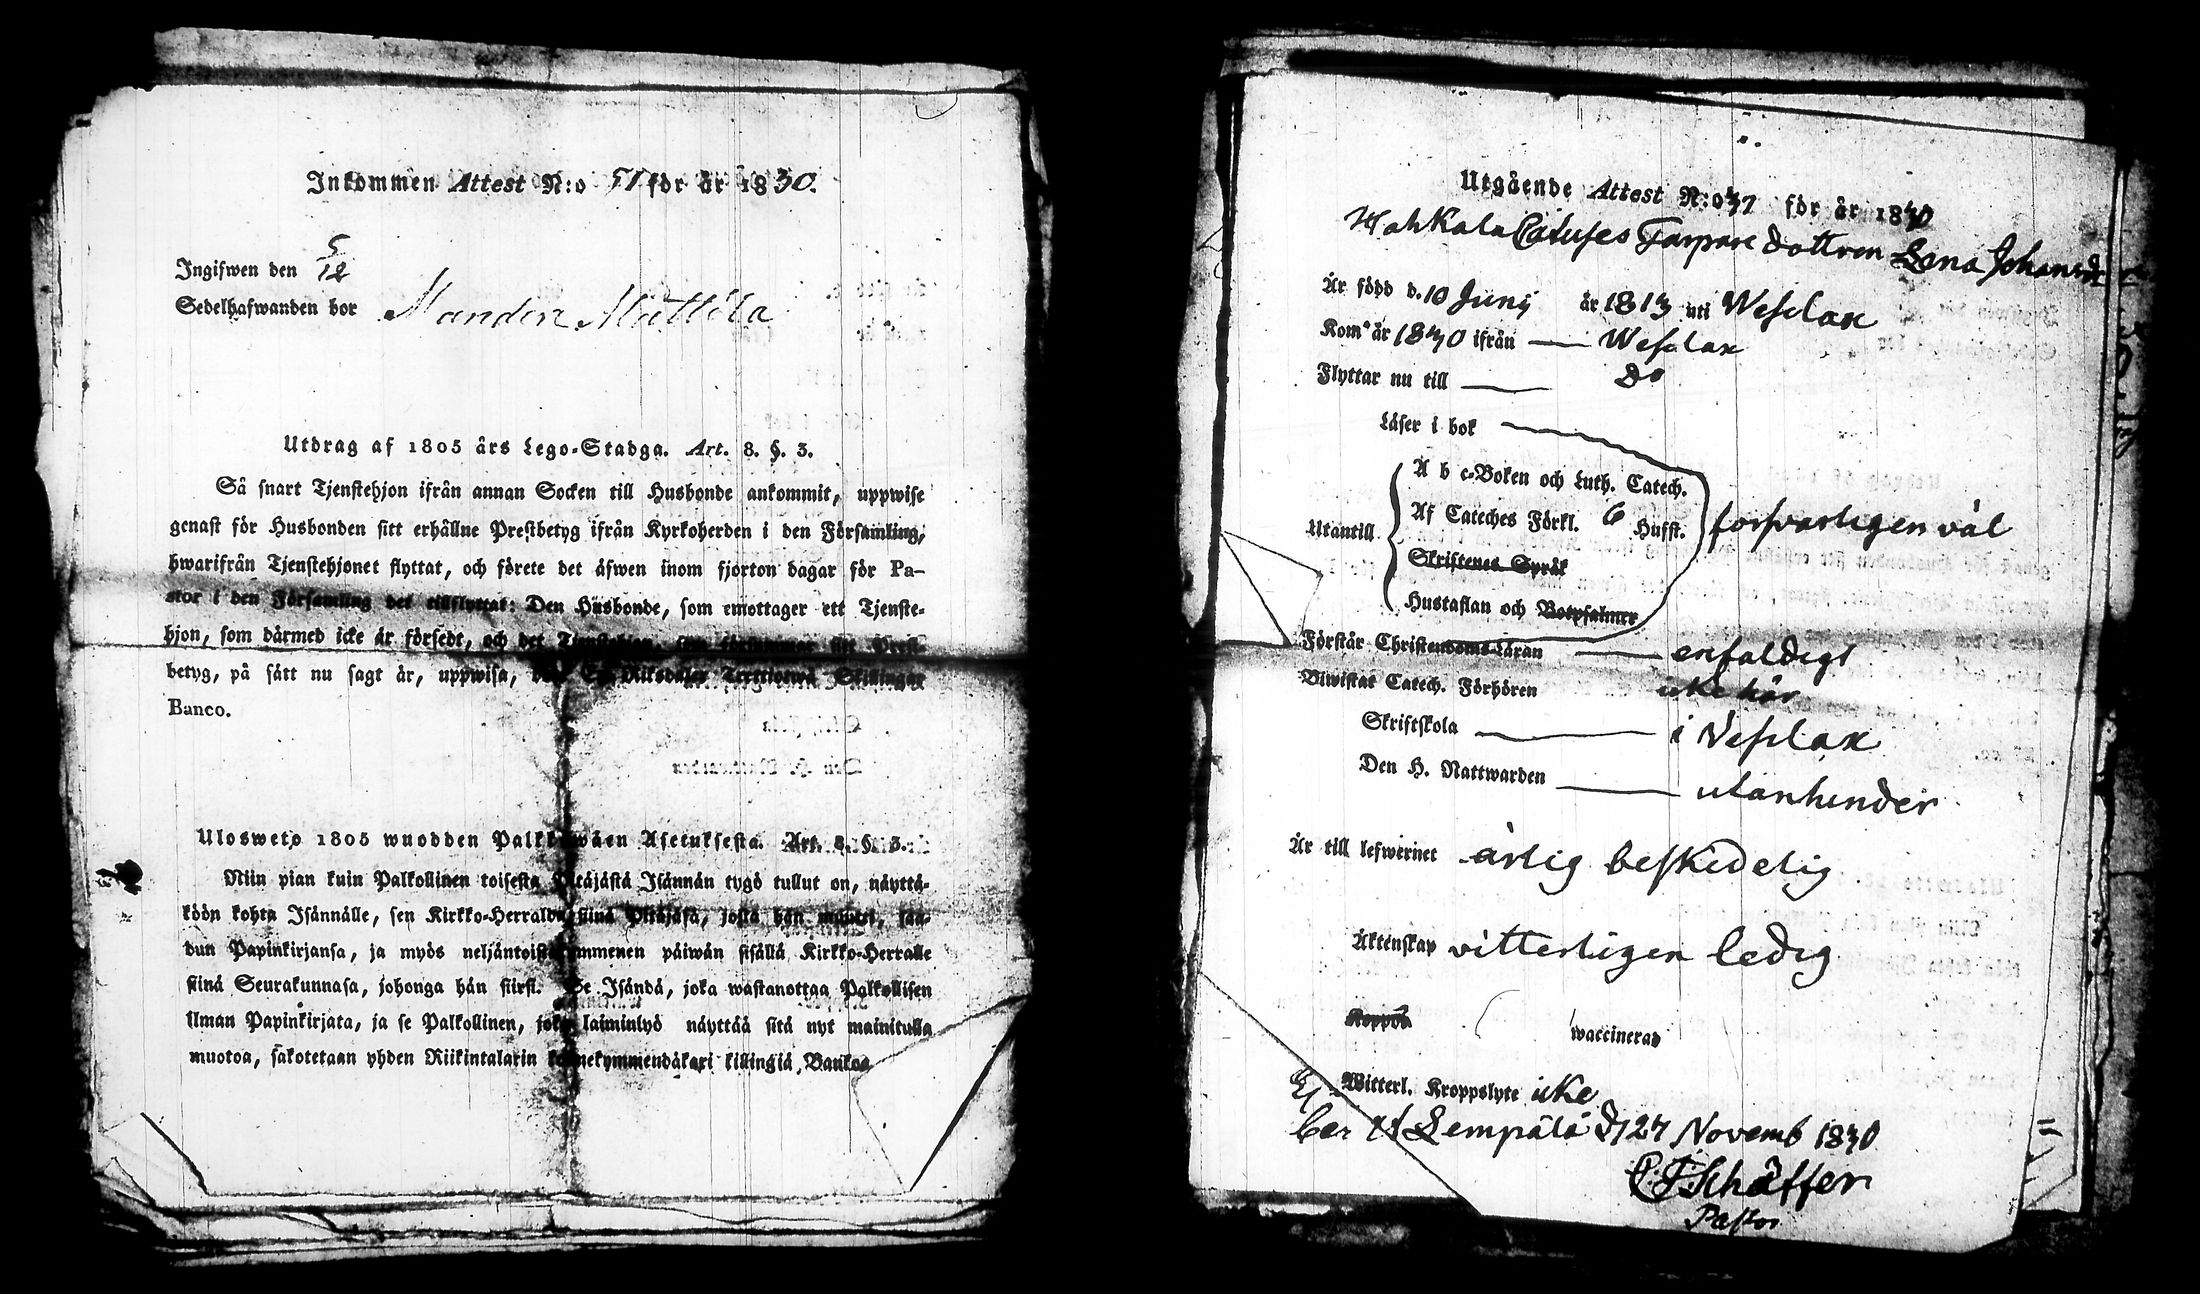 Inkommen Attest N:o 51 för år 1830.
Ingifwen den 5/12
Sedelhafwanden bor Mattila
Utdrag af 1805 års Lego-Stadga. Art. 8. §. 3.
Så snart Tjenstehjon ifrån annan Socken till Husbonde ankommit, uppwise
genast för Husbonden sitt erhållne Prestbetyg ifrån Kyrkoherden i den Församling,
hwarifrån Tjenstehjonet flyttat, och förete det äfwen inom fjorton dagar för Pa-
stor i den Församling det tillflyttat: Den Husbonde, som emottager ett Tjenste-
hjon, som därmed icke är försedt, och det Tjenstehjon, som försummar sitt Prest-
betyg, på sätt nu sagt är, uppwisa, Riksdaler Trettiotwå Skillingar
Banco.
Ulosweto 1805 wuodden Palkkawäen Asetuksesta. Art. 8. §. 3.
Niin pian kuin Palkollinen toisesta Pitäjästä Isännän tygö tullut on, näyttä-
köön kohta Isännälle, sen Kirkko-Herralda siinä Pitäjäsä, josta hän muutti, saa-
dun Papinkirjansa, ja myös neljäntoistakymmenen päiwän sisällä Kirkko-Herralle
siinä Seurakunnasa, johonga hän siirsi. Se Isändä, joka wastanottaa Palkollisen
ilman Papinkirjata, ja se Palkollinen, joka laiminlyö näyttää sitä nyt mainitulla
muotoa, sakotetaan yhden Riikintalarin kolmekymmendäkaxi killingiä, Bankos
Utgående Attest N:o 37 för år 1830
Torpare dottren Lena Johansdr
Är född d. 10 Junij år 1813 uti Wesilax
Kom år 1830 ifrån — Wesilax
Flyttar nu till — Do
Läser i bok
A b c-Boken och Luth. Catech.
Utantill Af Cateches Förkl. 6 Hufst. försvarligen väl
Skriftenes Språk
Hustaflan och Botpsalmer
Förstår Christendoms-Läran — enfaldigt
Biwistat Catech. Förhören icke här
Skriftskola — i Vesilax
Den H. Nattwarden — utan hinder
Är till lefwernet ärlig beskedelig
Äktenskap vitterligen ledig
Koppor waccinerad
Ej Witterl. Kroppslyte icke
Lempälä d 27 Novemb 1830
C. F. Schäffer
Pastor